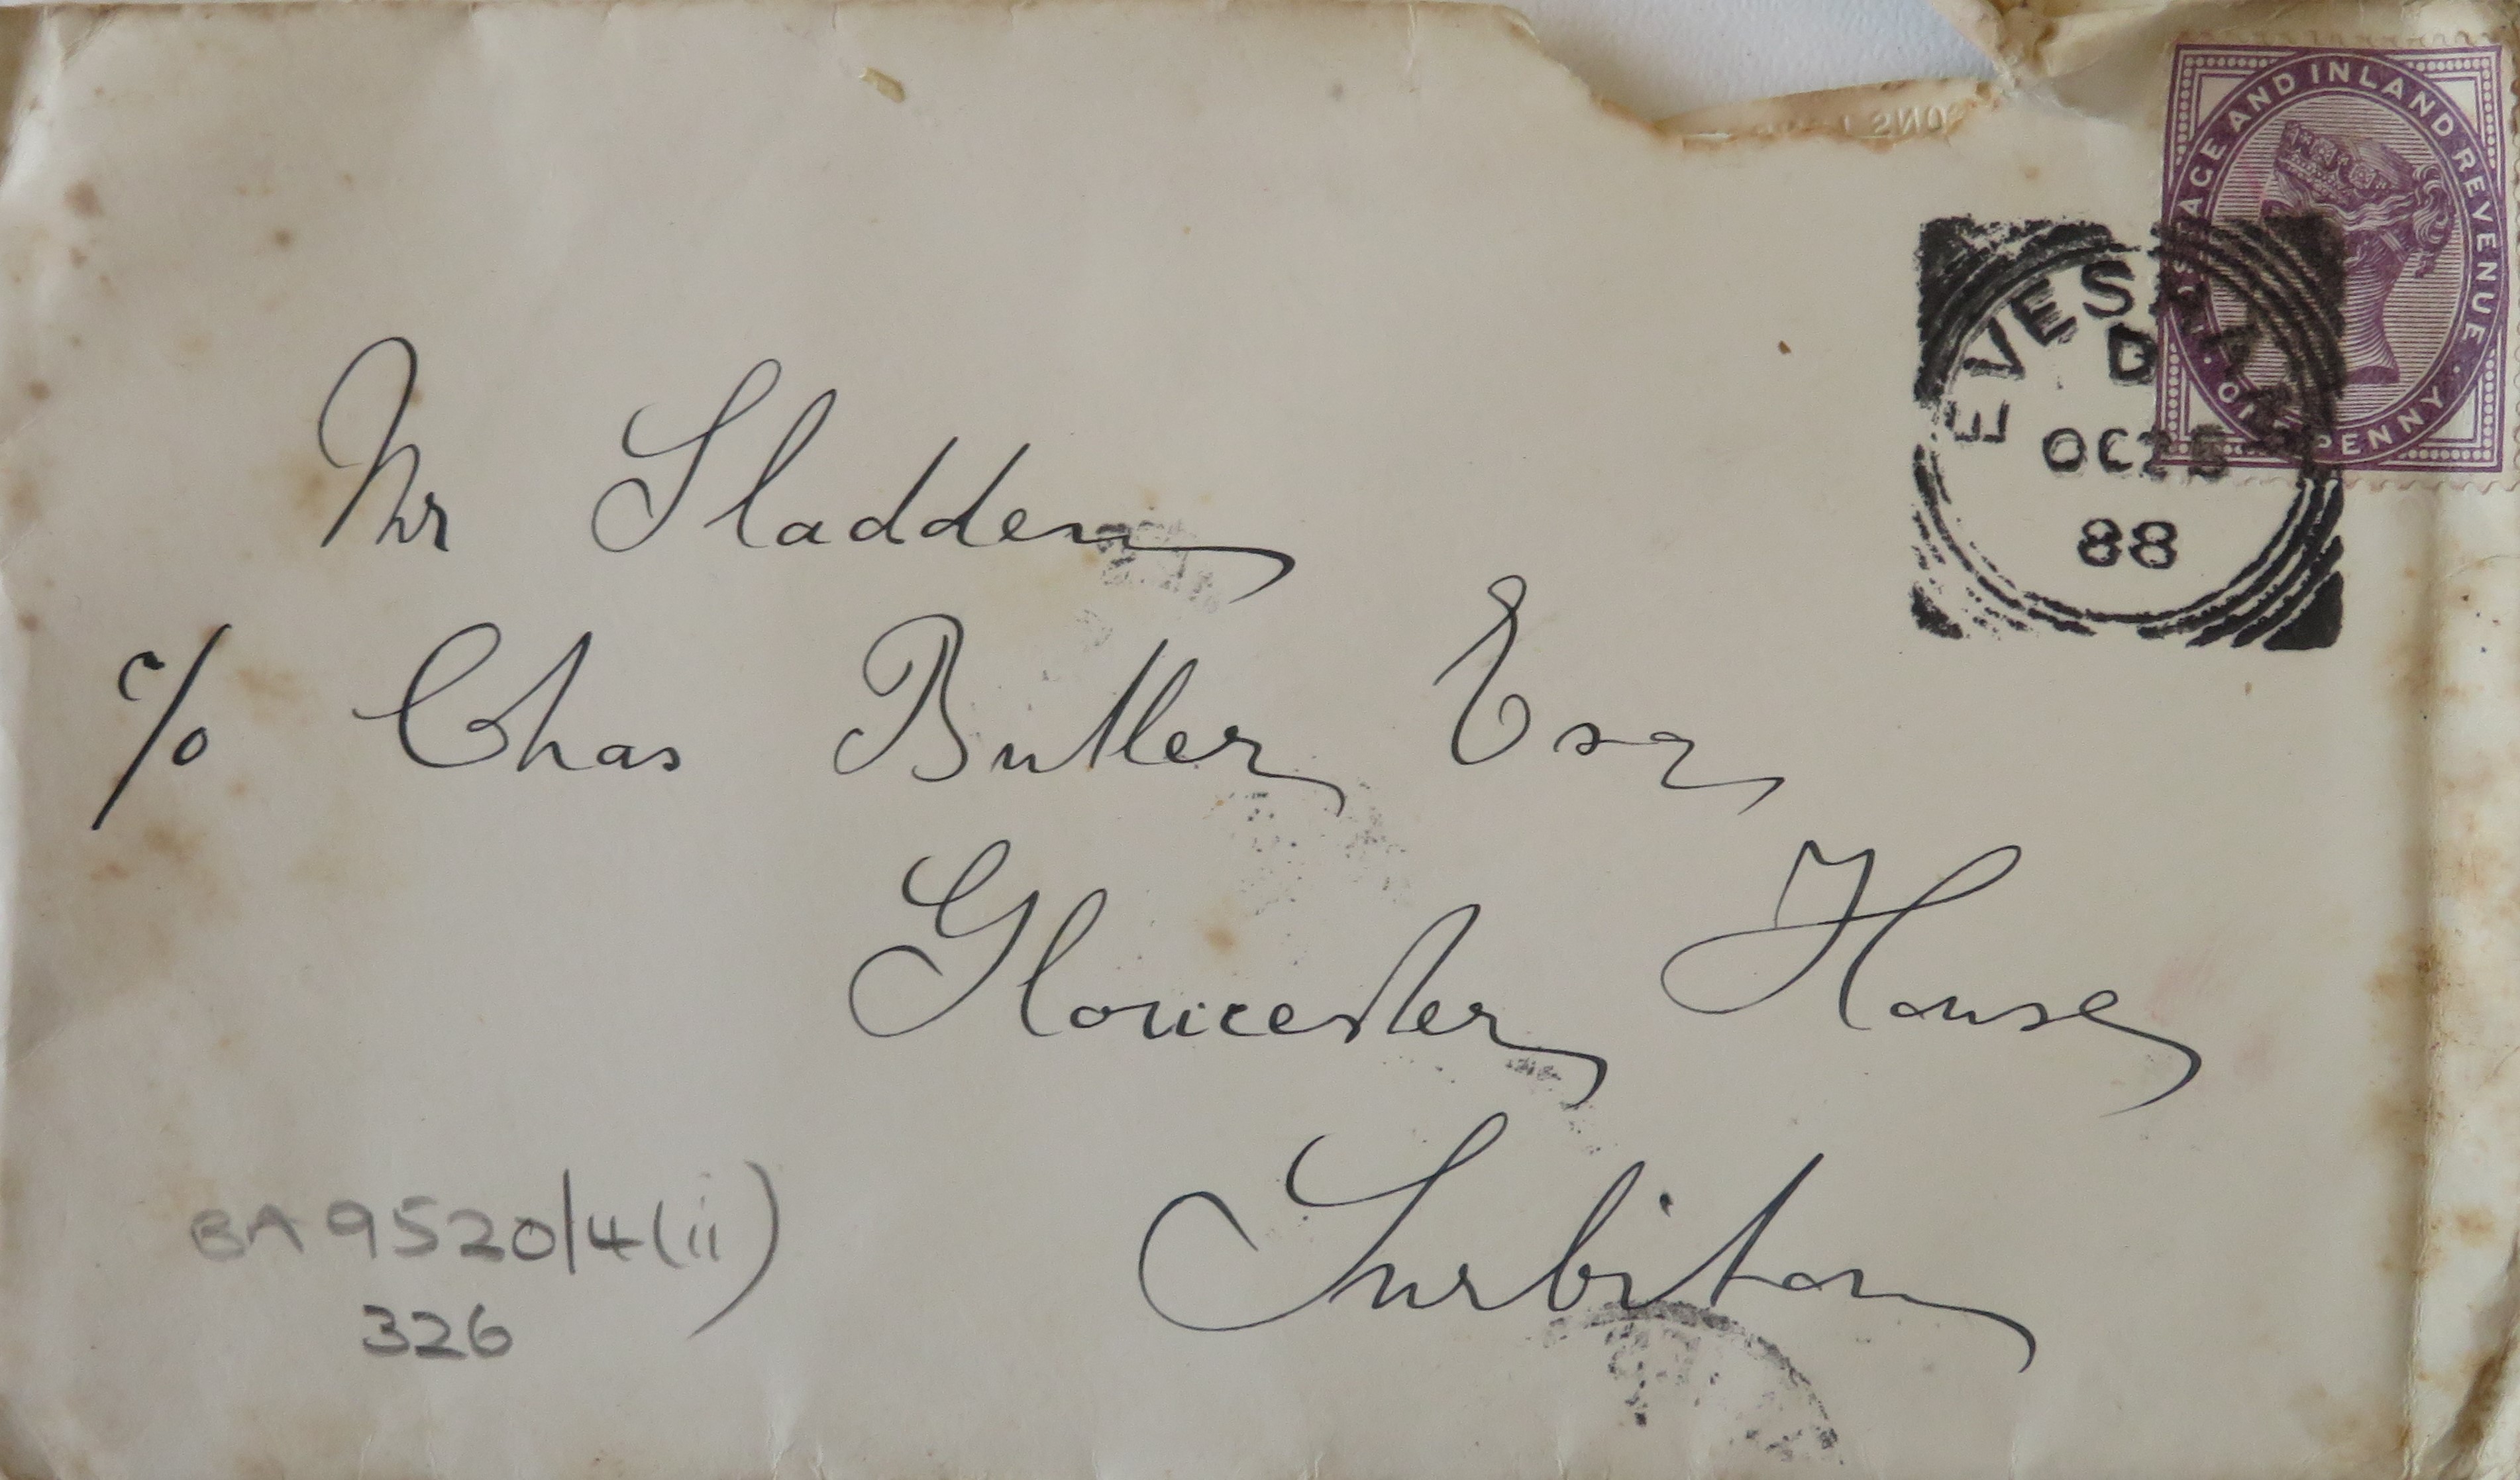 POSTAGE AND INLAND REVENUE
ONE PENNY
EVESHAM
D
OC 25
88
Mr Sladden
c/o Chas Butler Esq
Gloucester House
Surbiton
BA 9520/4(ii)
326